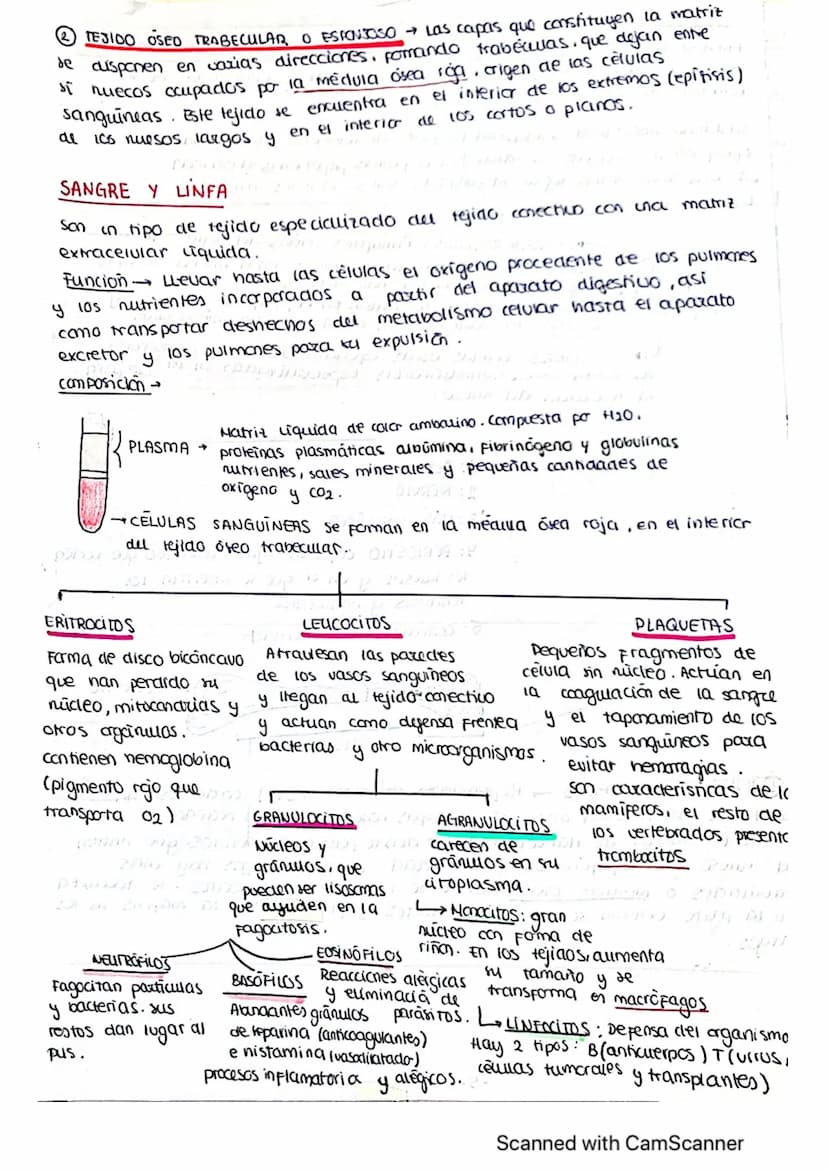 ② TEJIDO ÓSEO TRABECULAR O ESPONJOSO → Las capas que constituyen la matriz
se disponen en varias direcciones, formando trabéculas, que dejan entre
sí huecos ocupados por la médula ósea roja, origen de las células
sanguíneas. Este tejido se encuentra en el interior de los extremos (epífisis)
de los huesos largos y en el interior de los cortos o planos.
SANGRE Y LINFA
Son un tipo de tejido especializado del tejido conectivo con una matriz
extracelular líquida.
Función → Llevar hasta las células el oxígeno procedente de los pulmones
y los nutrientes incorporados a partir del aparato digestivo, así
como transportar deshechos del metabolismo celular hasta el aparato
excretor y los pulmones para su expulsión.
Composición →
PLASMA → Matriz líquida de color ambarino. Compuesta por H2O,
proteínas plasmáticas albúmina, fibrinógeno y globulinas
nutrientes, sales minerales y pequeñas cantidades de
oxígeno y CO2.
→ CÉLULAS SANGUÍNEAS se forman en la médula ósea roja, en el interior
del tejido óseo trabecular.
ERITROCITOS
Forma de disco bicóncavo
que han perdido su
núcleo, mitocondrias y
otros orgánulos.
contienen hemoglobina
(pigmento rojo que
transporta O2)
LEUCOCITOS
Atraviesan las paredes
de los vasos sanguíneos
y llegan al tejido conectivo
y actúan como defensa frente a
bacterias y otro microorganismos.
PLAQUETAS
Pequeños fragmentos de
célula sin núcleo. Actúan en
la coagulación de la sangre
y el taponamiento de los
vasos sanguíneos para
evitar hemorragias.
Son características de lo
mamíferos, el resto de
los vertebrados presente
trombocitos
GRANULOCITOS
Núcleos y
gránulos, que
pueden ser lisosomas
que ayuden en la
fagocitosis.
AGRANULOCITOS
carecen de
gránulos en su
citoplasma.
↳ Monocitos: gran
núcleo con forma de
riñón. En los tejidos, aumenta
su tamaño y se
transforma en macrófagos
↳ LINFOCITOS: Defensa del organismo
Hay 2 tipos: B (anticuerpos) T (virus,
células tumorales y transplantes)
NEUTRÓFILOS
Fagocitan partículas
y bacterias. Sus
restos dan lugar al
pus.
BASÓFILOS
Abundantes gránulos
de heparina (anticoagulantes)
e histamina (vasodilatador)
procesos inflamatoria y alégicos.
EOSINÓFILOS
Reacciones alérgicas
y eliminación de
parásitos.
Scanned with CamScanner